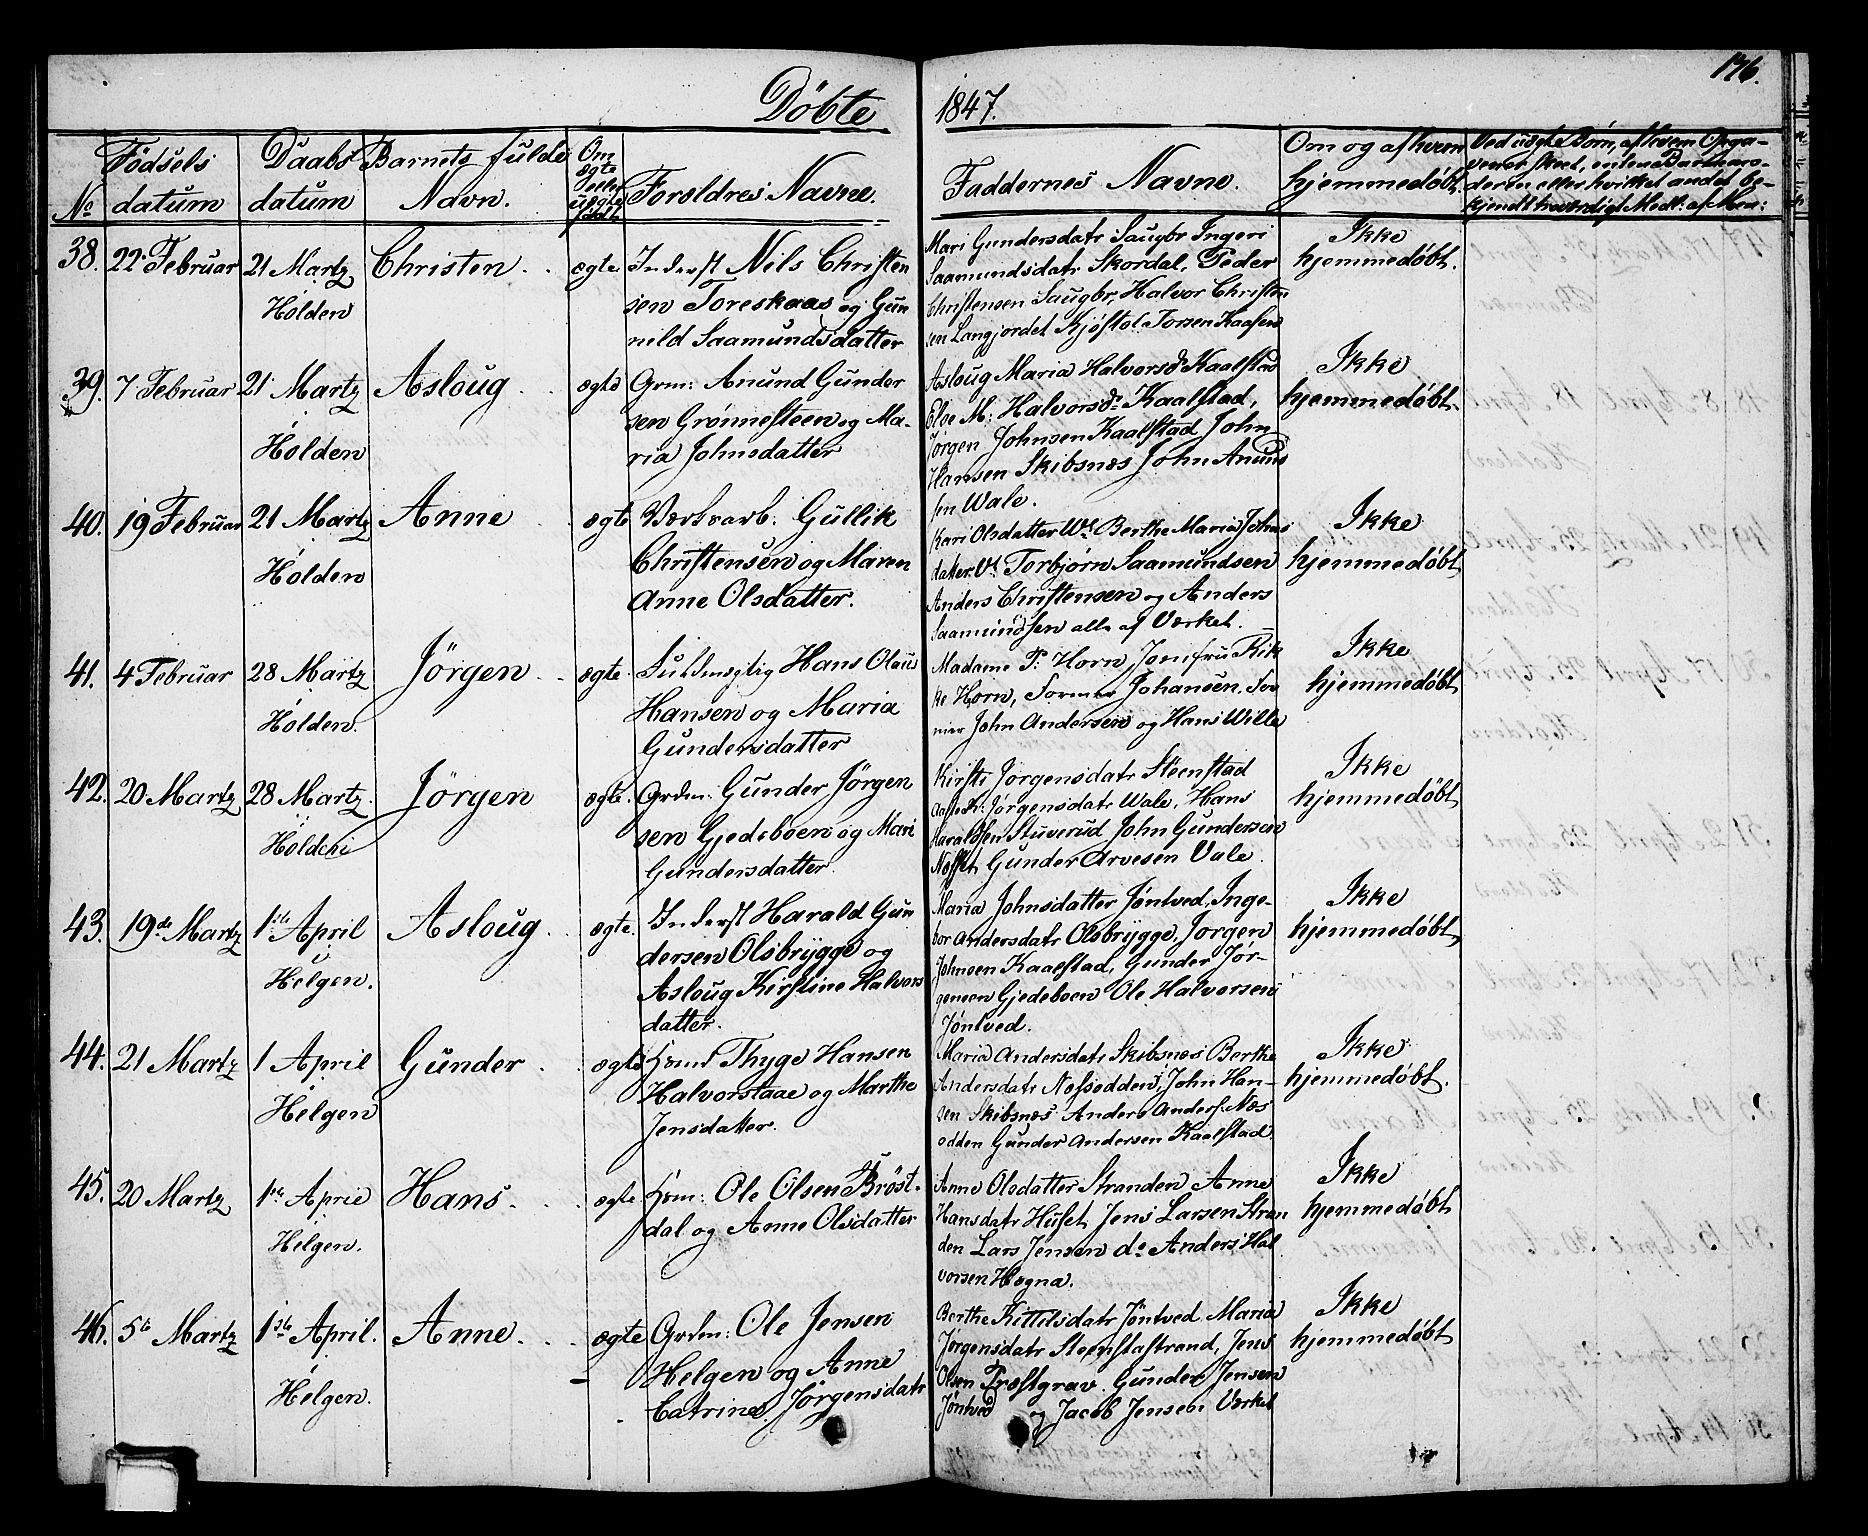 176.
Döbte 1847.
No
Födsels datum
Daabs datum
Barnets fulde Navn.
Om ægte eller uægte født.
Forældres Navne.
Faddernes Navne.
Om og af hvem hjemmedöbt.
Ved uægte Børn, af hvem Opga-
38. 22 Februar
21 Martz
Holden
Christen
ægte
Inderst Nils Christen
sen Toreskaas og Gun
nild Saamundsdatter
Mari Gundersdatr Saugbr Ingeri
Saamundsdatr Skordal, Peder
Christensen Saugbr, Halvor Christen
sen Langjordet Kjöstol Torsen Kaasen
Ikke
hjemmedöbt.
39. 7 Februar
21 Martz
Holden
Asloug
ægte
Grm: Anund Gunder
sen Grönnesteen og Ma-
ria Johnsdatter
Asloug Maria Halvorsd. Kaalstad
Else M: Halvorsd: Kaalstad,
Jørgen Johnsen Kaalstad John
Hansen Skibsnæs John Anund
sen Wale.
Ikke
hjemmedöbt.
40. 19 Februar
21 Martz
Holden
Anne
ægte
Værksarb: Gullik
Christensen og Maren
Anne Olsdatter.
Kari Olsdatter Berthe Maria Johns
datter Torbjørn Saamundsen
Anders Christensen og Anders
Saamundsen alle af Værket.
Ikke
hjemmedöbt
41. 4 Februar
28 Martz
Holden.
Jörgen
ægte.
Fuldmægtig Hans Olaus
Hansen og Maria
Gundersdatter
Madame P: Horn, Jomfru Rik
ke Horn, Former Johansen, For
mer John Andersen og Hans Wille
Ikke
hjemmedöbt
42. 20 Martz
28 Martz
Holden
Jörgen
ægte.
Grdm: Gunder Jörgen
sen Gjedeboen og Mari
Gundersdatter.
Kirsti Jørgensdatr Steenstad
Jørgensdatr Wale, Hans
Haraldsen Stuverud John Gundersen
Næsset Gunder Arvesen Vale.
Ikke
hjemmedöbt
43. 19de Martz
1ste April
Helgen.
Asloug
ægte.
Inderst Harald Gun
dersen Olsbrygge og
Asloug Kirstine Halvors
datter.
Maria Johnsdatter Jøntved, Inge-
bor Andersdatr Olsbrygge, Jorgen
Johnsen Kaalstad, Gunder Jør-
gensen Gjedeboen Ole Halvorsen
Jøntved.
Ikke
hjemmedöbt
44. 21 Martz
1 April
Helgen
Gunder
ægte
Thyge Hansen
Halvorstaae og Marthe
Jensdatter.
Maria Andersdatr Skibsnæs Berthe
Andersdatr Næsodden, John Han-
sen Skibsnæs Anders Anders. Næs
odden Gunder Andersen Kaalstad
Ikke
hjemmedöbt.
45. 20 Martz
1ste Aprie
Helgen.
Hans
ægte
Hsm: Ole Olsen Bröst-
dal og Anne Olsdatter
Anne Olsdatter Stranden Anne
Hansdatr Huset Jens Larsen Stran
den Lars Jensen do Anders Hal
vorsen Hægna.
Ikke
hjemmedöbt
46. 5te Martz
1ste April.
Helgen.
Anne
ægte
Grdm: Ole Jensen
Helgen og Anne
Catrine Jørgensdatr
Berthe Kittilsdatr Jöntved Maria
Jørgensdatr Steenstastrand, Jens
Olsen Præstgrav. Gunder Jensen
Jöntved og Jacob Jensen Værket
Ikke
hjemmedöbt